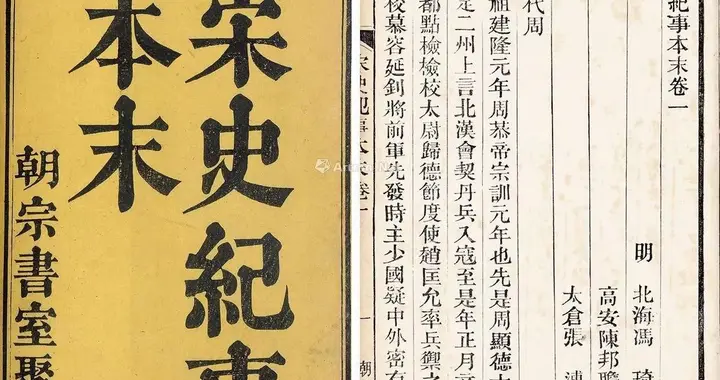 宋史紀事
本末
朝宗書室聚
紀事本末卷一
明 北海馮 琦
高安陳邦瞻
太倉張 溥
代周
祖建隆元年周恭帝宗訓元年也先是周顯德
定二州上言北漢會契丹兵入寇至是年正月
都點檢檢校太尉歸德節度使趙匡允率兵禦之
校慕容延釗將前軍先發時主少國疑中外密有
宋史紀事本末卷一 一 朝